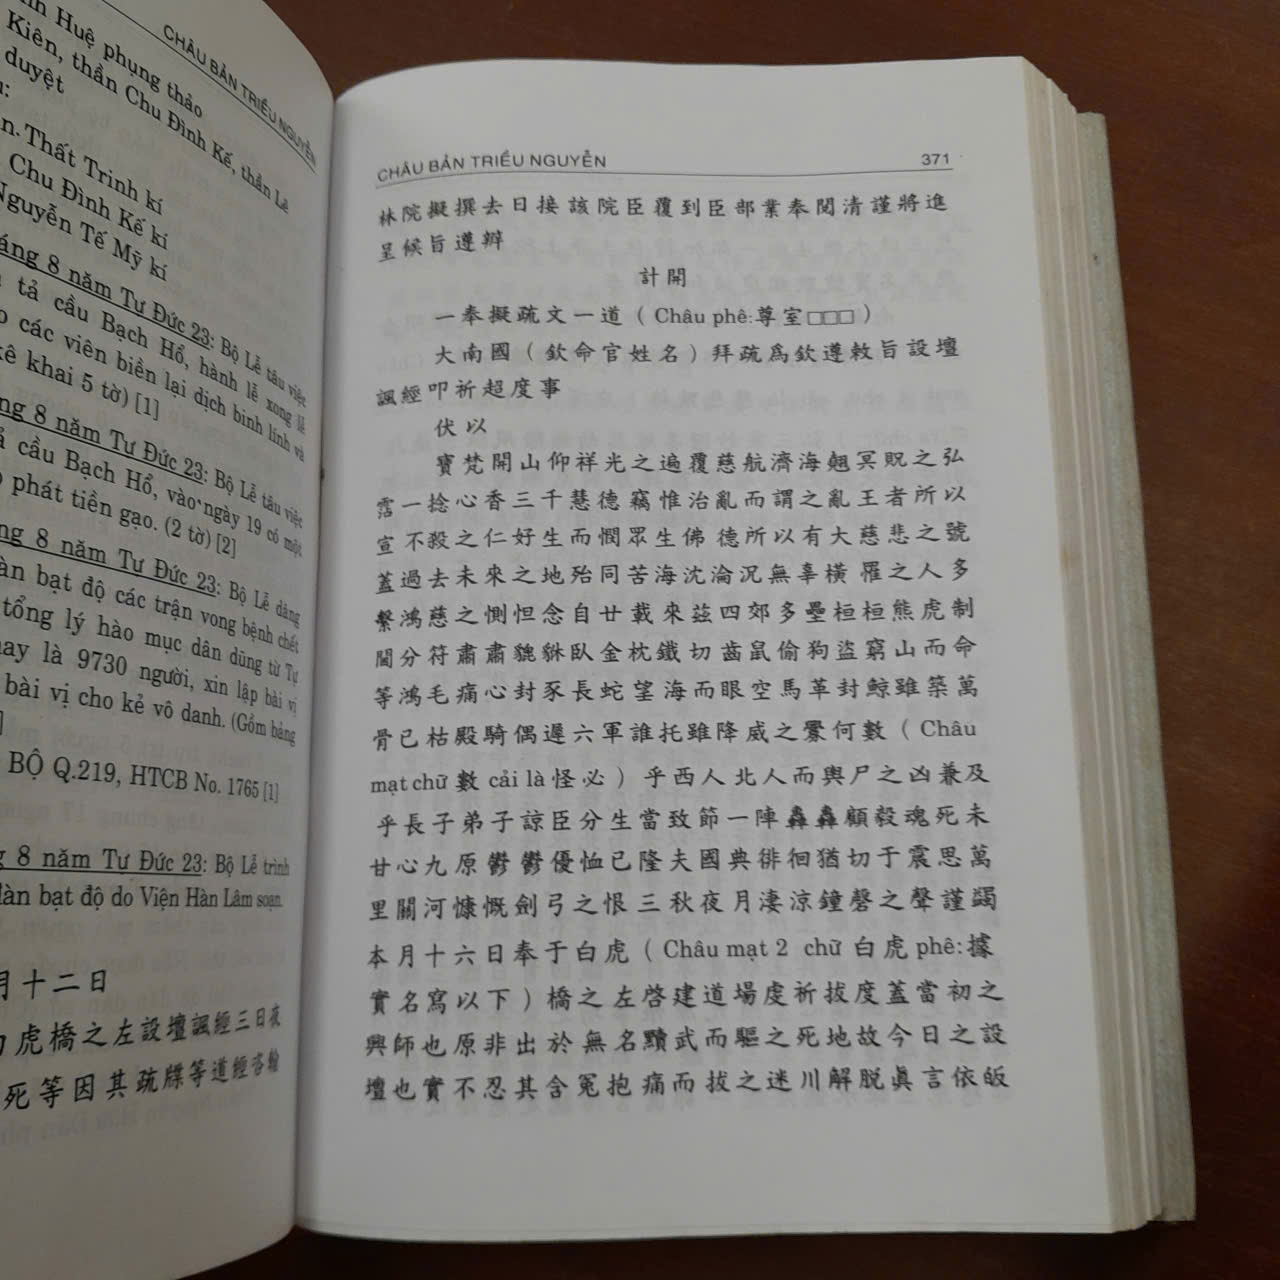 CHÂU BẢN TRIỀU NGUYỄN
Huệ phụng thảo
Kiên, thần Chu Đình Kế, thần Lê
duyệt
Thất Trinh kí
Chu Đình Kế kí
Nguyễn Tế Mỹ kí
8 năm Tự Đức 23: Bộ Lễ tâu việc
tả cầu Bạch Hổ, hành lễ xong lễ
các viên biền lại dịch binh lính và
kê khai 5 tờ) [1]
8 năm Tự Đức 23: Bộ Lễ tâu việc
cầu Bạch Hổ, vào ngày 19 có một
phát tiền gạo. (2 tờ) [2]
8 năm Tự Đức 23: Bộ Lễ dâng
đàn bạt độ các trận vong bệnh chết
tổng lý hào mục dân dũng từ Tự
nay là 9730 người, xin lập bài vị
bài vị cho kẻ vô danh. (Gồm bảng
BỘ Q.219, HTCB No. 1765 [1]
8 năm Tự Đức 23: Bộ Lễ trình
đàn bạt độ do Viện Hàn Lâm soạn.
月十二日
虎橋之左設壇諷經三日夜
死等因其疏牒等道經咨翰
CHÂU BẢN TRIỀU NGUYỄN 371
林院擬撰去日接該院臣覆到臣部業奉閱清謹將進
呈候旨遵辦
計開
一奉擬疏文一道（Châu phê:尊室□□□）
大南國（欽命官姓名）拜疏爲欽遵敕旨設壇
諷經叩祈超度事
伏以
寶梵開山仰祥光之遍覆慈航濟海翹冥貺之弘
霑一捻心香三千慧德竊惟治亂而謂之亂王者所以
宣不殺之仁好生而憫眾生佛德所以有大慈悲之號
蓋過去未來之地殆同苦海沈淪況無辜橫罹之人多
繫鴻慈之惻怛念自廿載來茲四郊多壘桓桓熊虎制
閫分符肅肅貔貅臥金枕鐵切齒鼠偷狗盜窮山而命
等鴻毛痛心封豕長蛇望海而眼空馬革封鯨雖築萬
骨已枯殿騎偶遲六軍誰托雖降威之釁何數（Châu
mạt chữ 數 cải là 怪必）乎西人北人而輿尸之凶兼及
乎長子弟子諒臣分生當致節一陣轟轟顧毅魂死未
甘心九原鬱鬱優恤已隆夫國典徘徊猶切于震思萬
里關河慷慨劍弓之恨三秋夜月淒涼鐘磬之聲謹蠲
本月十六日奉于白虎（Châu mạt 2 chữ 白虎 phê:據
實名寫以下）橋之左啓建道場虔祈拔度蓋當初之
興師也原非出於無名黷武而驅之死地故今日之設
壇也實不忍其含冤抱痛而拔之迷川解脱眞言依皈